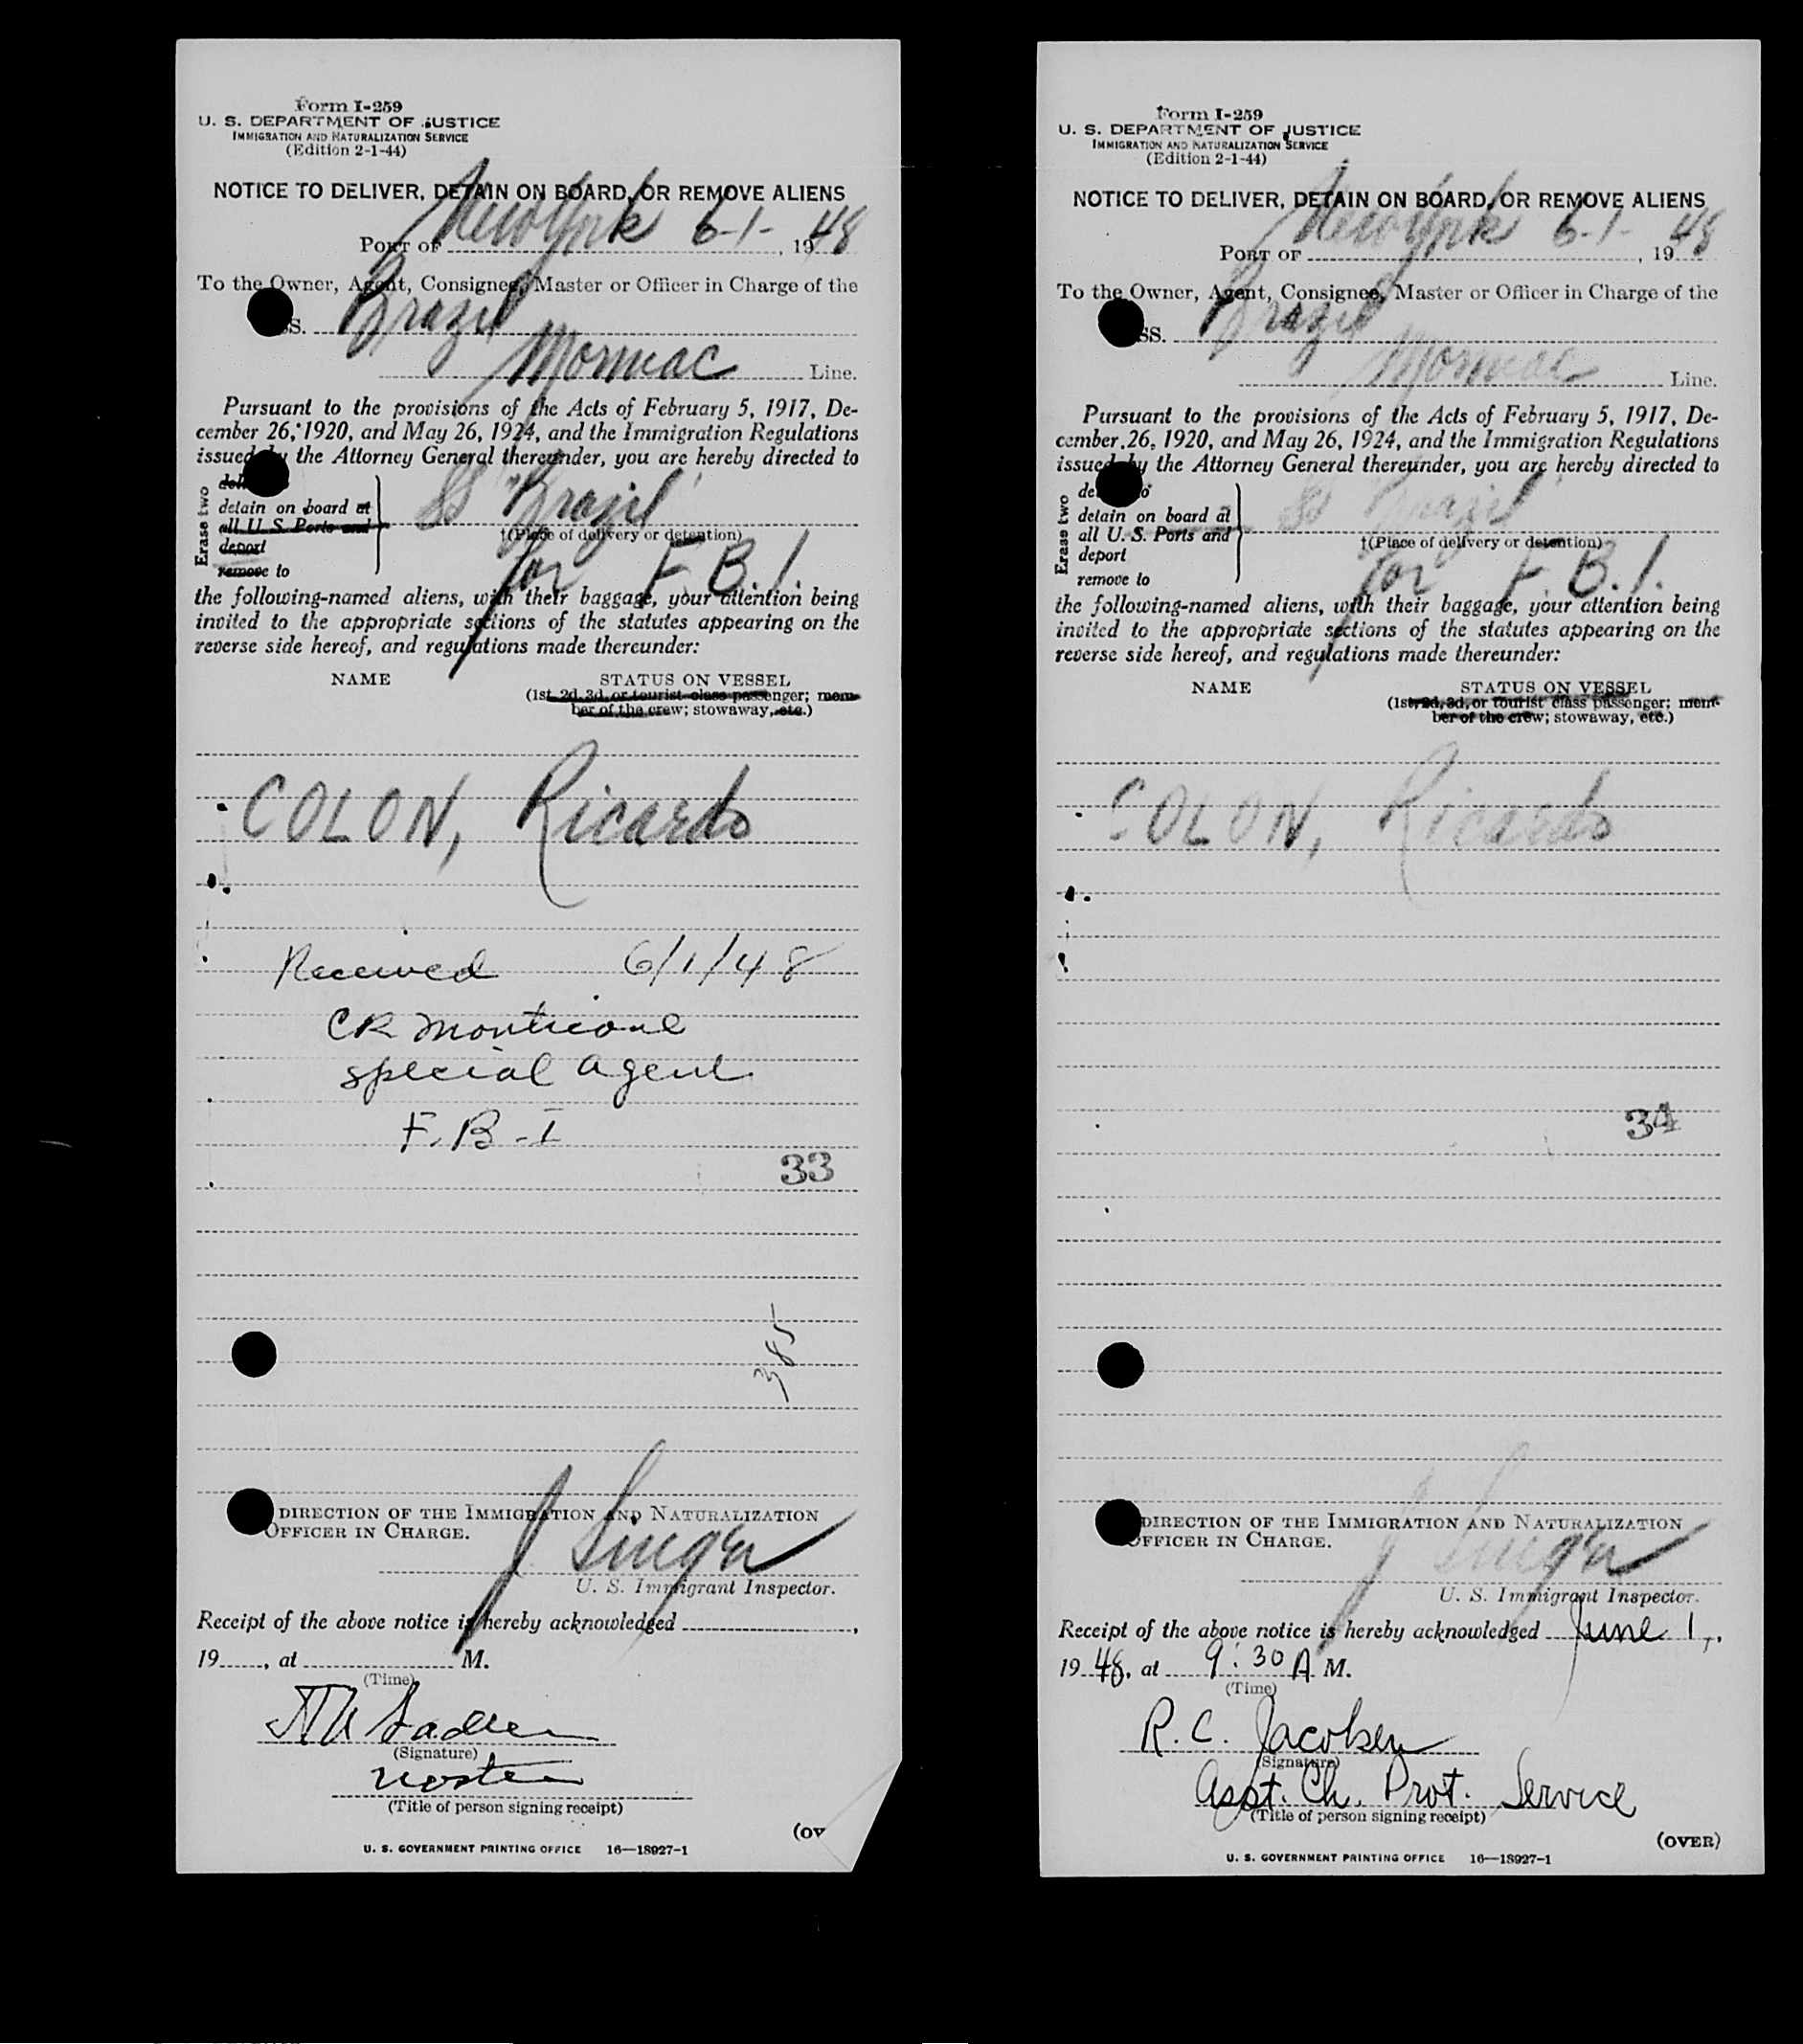 Form I-259
U. S. DEPARTMENT OF JUSTICE
IMMIGRATION AND NATURALIZATION SERVICE
(Edition 2-1-44)
NOTICE TO DELIVER, DETAIN ON BOARD, OR REMOVE ALIENS
PORT OF New York 6-1-, 1948
To the Owner, Agent, Consignee, Master or Officer in Charge of the
SS. Brazil
Mormac Line.
Pursuant to the provisions of the Acts of February 5, 1917, De-
cember 26, 1920, and May 26, 1924, and the Immigration Regulations
issued by the Attorney General thereunder, you are hereby directed to
Erase two
detain on board at
all U. S. Ports and
deport
remove to
SS "Brazil"
†(Place of delivery or detention)
for F.B.I.
the following-named aliens, with their baggage, your attention being
invited to the appropriate sections of the statutes appearing on the
reverse side hereof, and regulations made thereunder:
NAME STATUS ON VESSEL
(1st, 2d, 3d, or tourist class passenger; mem-
ber of the crew; stowaway, etc.)
COLON, Ricardo
Received 6/1/48
CR Monticone
special agent
F.B-I
33
385
DIRECTION OF THE IMMIGRATION AND NATURALIZATION
OFFICER IN CHARGE.
J Singer
U. S. Immigrant Inspector.
Receipt of the above notice is hereby acknowledged ,
19 , at M.
(Time)
(Signature)
(Title of person signing receipt)
(OV
U. S. GOVERNMENT PRINTING OFFICE 16—18927-1
Form I-259
U. S. DEPARTMENT OF JUSTICE
IMMIGRATION AND NATURALIZATION SERVICE
(Edition 2-1-44)
NOTICE TO DELIVER, DETAIN ON BOARD, OR REMOVE ALIENS
PORT OF New York 6-1-, 1948
To the Owner, Agent, Consignee, Master or Officer in Charge of the
SS. Brazil
Mormac Line.
Pursuant to the provisions of the Acts of February 5, 1917, De-
cember 26, 1920, and May 26, 1924, and the Immigration Regulations
issued by the Attorney General thereunder, you are hereby directed to
Erase two
detain on board at
all U. S. Ports and
deport
remove to
SS Brazil
†(Place of delivery or detention)
for F.B.I.
the following-named aliens, with their baggage, your attention being
invited to the appropriate sections of the statutes appearing on the
reverse side hereof, and regulations made thereunder:
NAME STATUS ON VESSEL
(1st, 2d, 3d, or tourist class passenger; mem-
ber of the crew; stowaway, etc.)
COLON, Ricardo
34
DIRECTION OF THE IMMIGRATION AND NATURALIZATION
OFFICER IN CHARGE.
J Singer
U. S. Immigrant Inspector.
Receipt of the above notice is hereby acknowledged June 1,
1948, at 9:30 A M.
(Time)
R. C. Jacobsen
(Signature)
Asst. Ch. Prot. Service
(Title of person signing receipt)
(OVER)
U. S. GOVERNMENT PRINTING OFFICE 16—18927-1